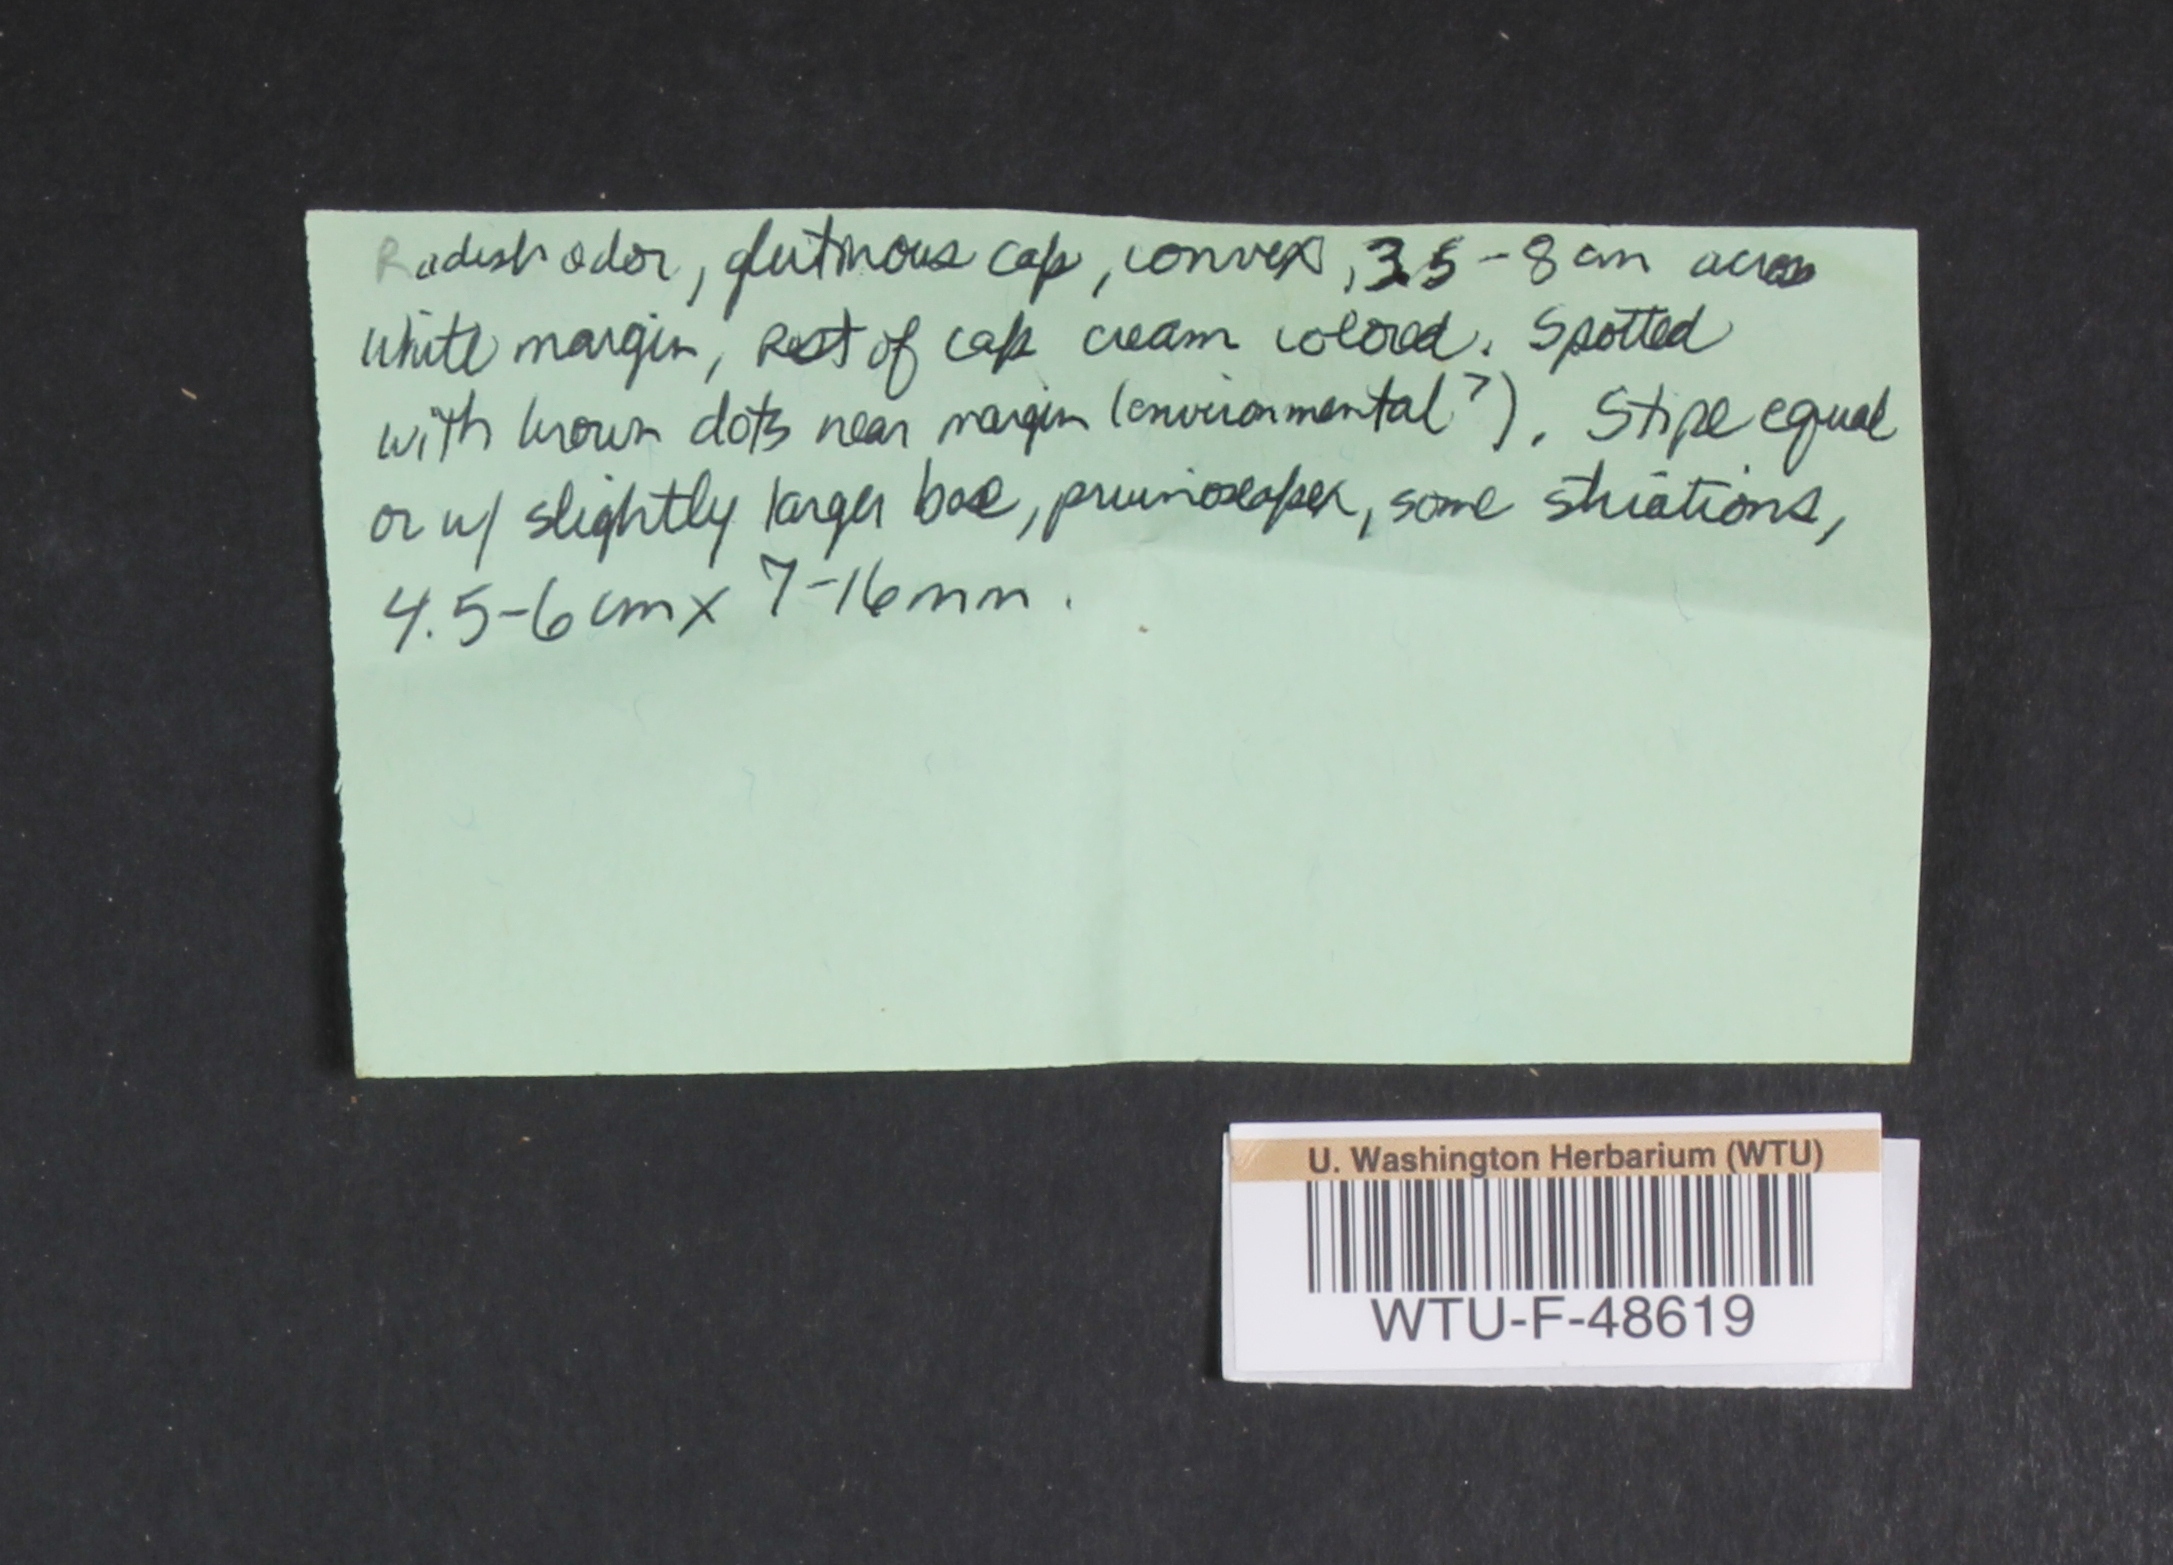 Radish odor, glutinous cap, convex, 3.5-8 cm across
white margin, Rest of cap cream colored. Spotted
with brown dots near margin (environmental?). Stipe equal
or w/ slightly larger base, pruinose apex, some striations,
4.5-6 cm x 7-16 mm.
U. Washington Herbarium (WTU)
WTU-F-48619